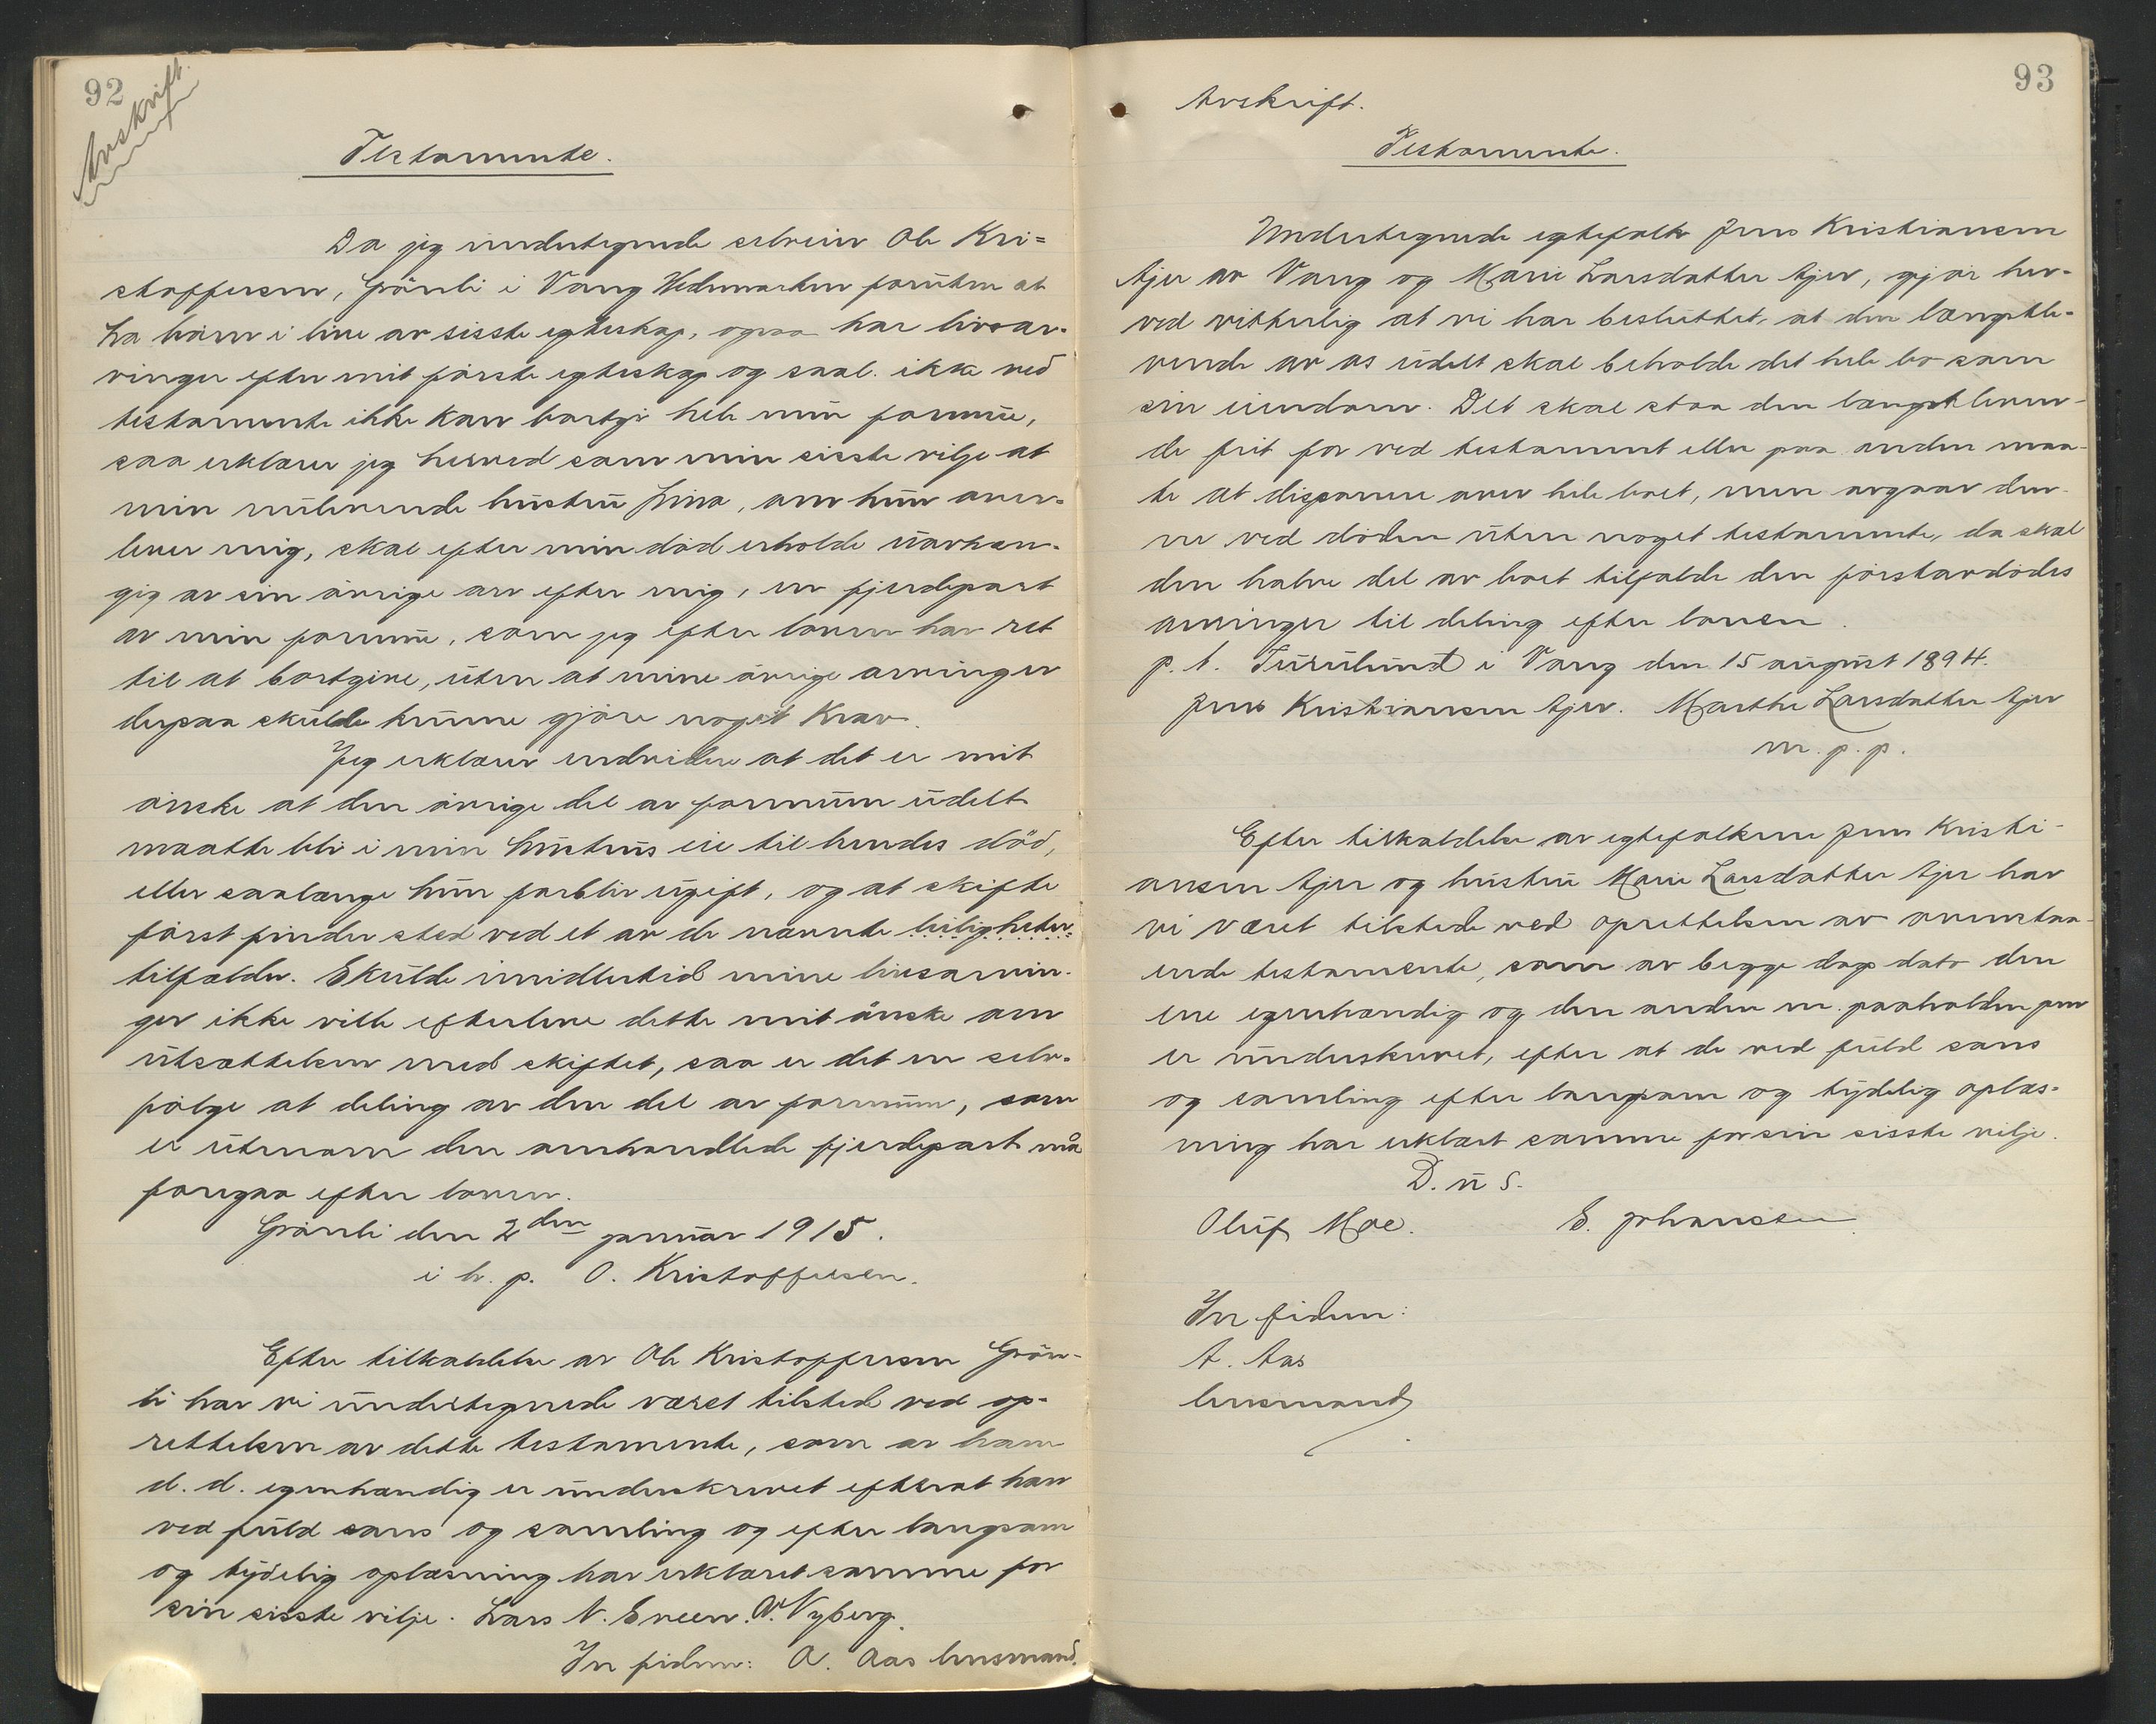 92
Avskrift.
Testamente.
Da jeg undertegnede selveier Ole Kri=
stoffersen, Grönli i Vang Hedemarken foruten at
ha barn i live av sisste egteskap, ogsaa har livsar=
vinger efter mit förste egteskap og saal. ikke ved
testamente ikke kan bortgi hele min formue,
saa erklærer jeg herved som min sisste vilje at
min nulevende hustru Lina, om hun over=
lever mig, skal efter min död erholde uavhæn=
gig av sin övrige arv efter mig, en fjerdepart
av min formue, som jeg efter loven har ret
til at bortgive, uten at mine övrige arvinger
derpaa skulde kunne gjöre noget krav.
Jeg erklærer endvidere at det er mit
önske at den övrige del av formuen udelt
maatte bli i min hustrus eie til hendes död,
eller saalænge hun forblir ugift, og at skifte
först finder sted ved et av de nævnte leiligheter=
tilfælder. Skulde imidlertid mine livsarvin=
ger ikke ville efterleve dette mit önske om
utsættelsen med skiftet, saa er det en selv=
fölge at deling av den del av formuen, som
er utenom den omhandlede fjerdepart må
foregaa efter loven.
Grönli den 2den januar 1915.
i h. p. O. Kristoffersen.
Efter tilkaldelse av Ole Kristoffersen Grön=
li har vi undertegnede været tilstede ved op=
rettelsen av dette testamente, som av ham
d. d. egenhændig er underskrevet efterat han
ved fuld sans og samling og efter langsom
og tydelig oplæsning har erklæret samme for
sin sisste vilje. Lars N. Eveen. A. Nyberg.
In fidem: A. Aas lensmand.
93
Avskrift.
Testamente.
Undertegnede egtefolk Jens Kristiansen
Ajer av Vang og Marie Larsdatter Ajer, gjör her=
ved vitterlig at vi har besluttet, at den længstle=
vende av os udelt skal beholde det hele bo som
sin eiendom. Det skal staa den længstleven=
de frit for ved testament eller paa anden maa=
te at disponere over hele boet, men avgaar den=
ne ved döden uten noget testamente, da skal
den halve del av boet tilfalde den förstavdödes
arvinger til deling efter loven.
p. t. Furulund i Vang den 15 august 1894.
Jens Kristiansen Ajer. Marthe Larsdatter Ajer
m. p. p.
Efter tilkaldelse av egtefolkene Jens Kristi=
ansen Ajer og hustru Marie Larsdatter Ajer har
vi været tilstede ved oprettelsen av ovenstaa=
ende testamente, som av begge dags dato den
ene egenhændig og den anden m. paaholden pen
er underskrevet, efter at de ved fuld sans
og samling efter langsom og tydelig oplæs=
ning har erklært samme for sin sisste vilje.
D. u S.
Oluf Moe. E. Johansen
In fidem:
A. Aas
lensmand